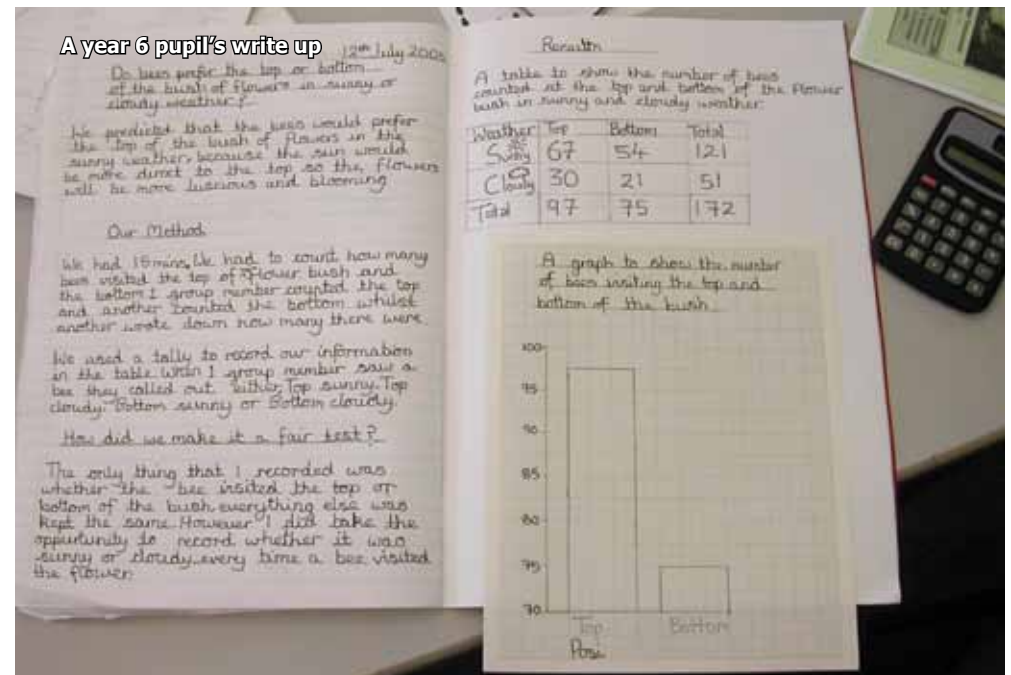 A year 6 pupil's write up
12th July 2005
Do bees prefer the top or bottom
of the bush of flowers in sunny or
cloudy weather?
We predicted that the bees would prefer
the top of the bush of flowers in the
sunny weather, because the sun would
be more direct to the top so the flowers
will be more luscious and blooming
Our Method
We had 15 mins. We had to count how many
bees visited the top of flower bush and
the bottom 1 group member counted the top
and another counted the bottom whilst
another wrote down how many there were.
We used a tally to record our information
in the table when 1 group member saw a
bee they called out either, Top sunny, Top
cloudy, Bottom sunny or Bottom cloudy.
How did we make it a fair test?
The only thing that I recorded was
whether the bee visited the top or
bottom of the bush everything else was
kept the same. However I did take the
oppurtunity to record whether it was
sunny or cloudy every time a bee visited
the flower.
Results
A table to show the number of bees
counted at the top and bottom of the flower
bush in sunny and cloudy weather
Weather Top Bottom Total
Sunny 67 54 121
Cloudy 30 21 51
Total 97 75 172
A graph to show the number
of bees visiting the top and
bottom of the bush
100
95
90
85
80
75
70
Top Bottom